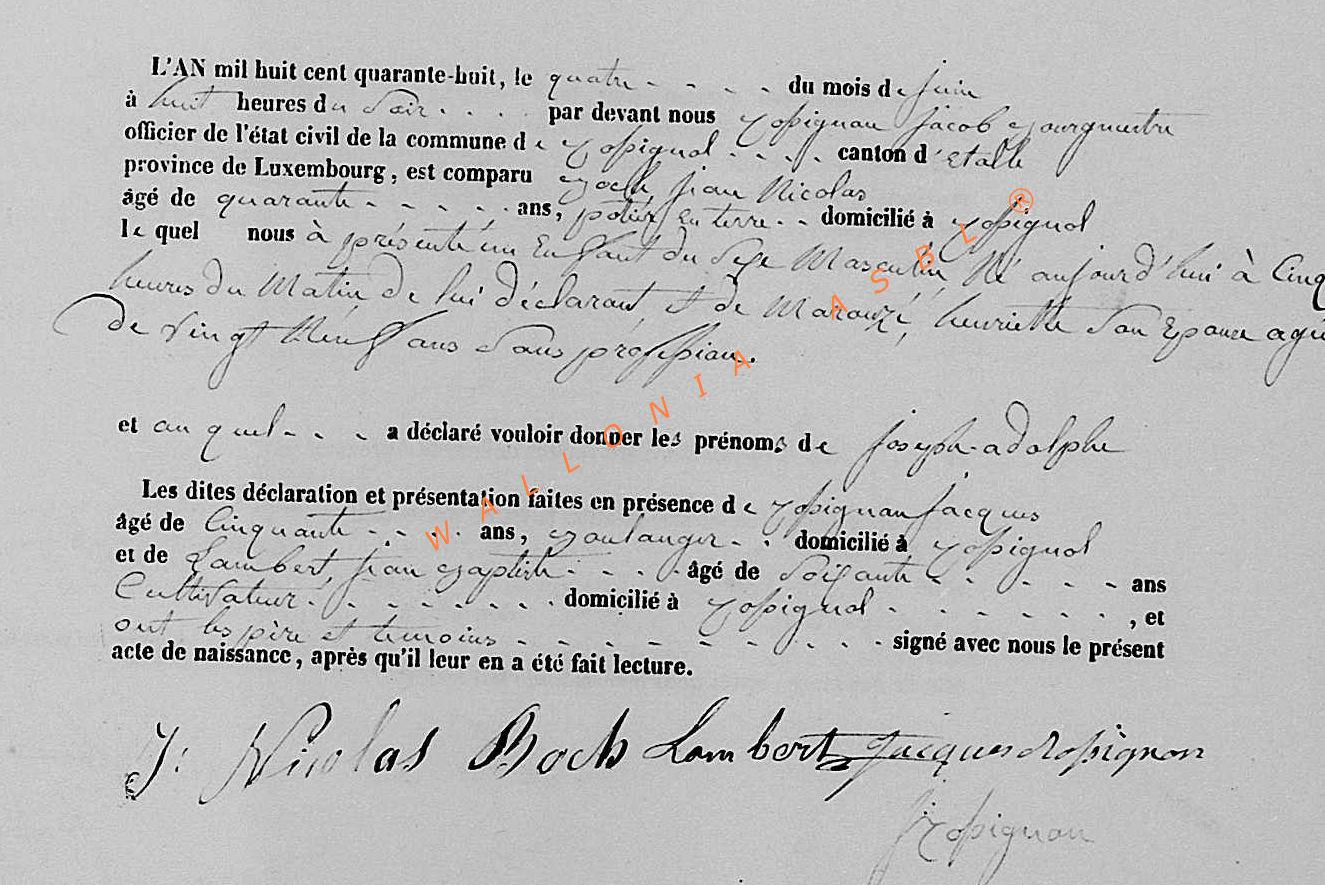 L'AN mil huit cent quarante-huit, le quatre - - - - du mois de juin
à huit heures du Soir . . . . par devant nous Rossignon jacob Bourgmestre
officier de l'état civil de la commune de Rossignol - - - . canton d'etalle
province de Luxembourg, est comparu Boch jean Nicolas
âgé de quarante - - - - - ans, potier En terre - - domicilié à Rossignol
lequel nous à présenté un Enfant du Sexe Masculin, Né aujourd'hui à Cinq
heures du Matin de lui déclarant et de Marouzé, henriette Son Epouse agée
de Vingt Neuf ans Sans profession.
et au quel - - - a déclaré vouloir donner les prénoms de joseph-adolphe
Les dites déclaration et présentation faites en présence de Rossignon jacques
âgé de Cinquante - - - ans, Boulanger - . domicilié à Rossignol
et de Lambert, jean Baptiste - - - - âgé de Soixante - - - - - ans
Cultivateur - - - - - - - domicilié à Rossignol - - - - - - , et
ont les père et temoins - - - - - - - - - - signé avec nous le présent
acte de naissance, après qu'il leur en a été fait lecture.
J: Nicolas Boch Lambert Jacques Rossignon
j Rossignon
WALLONIA ASBL ®